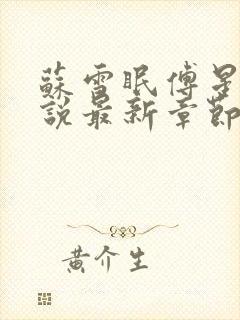 蘇雪眠傅星
說最新章節
黃介生